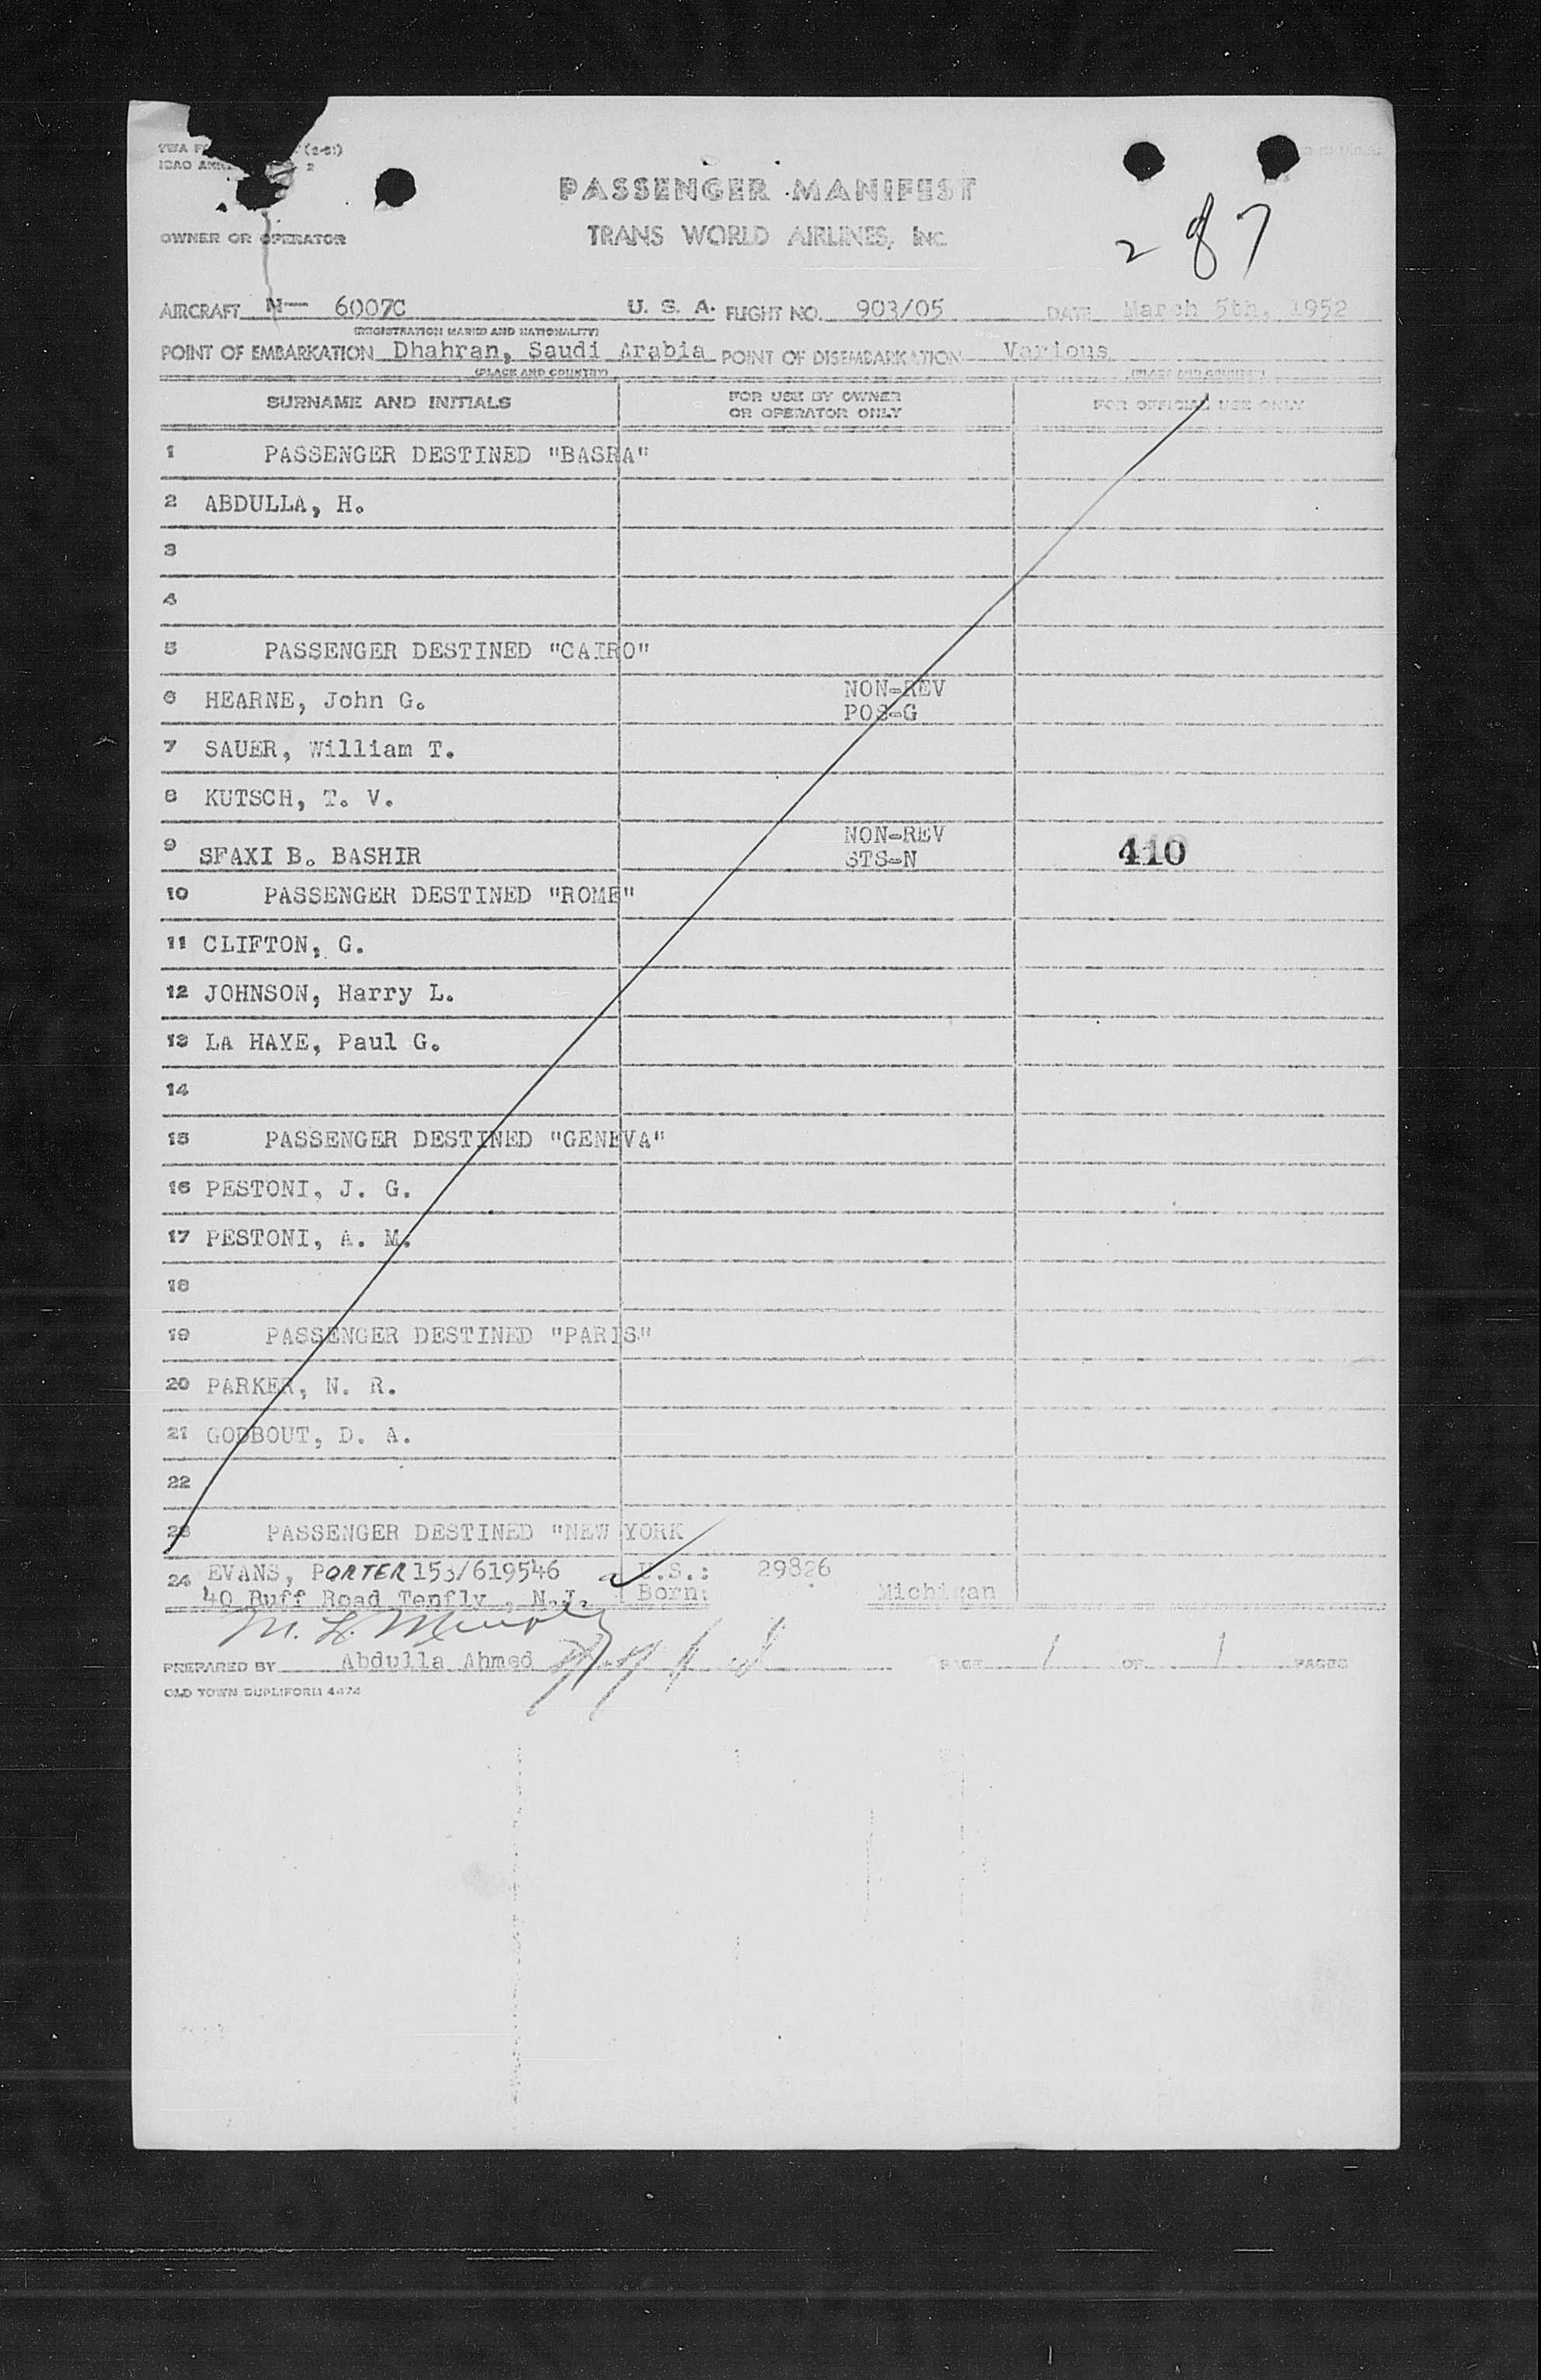 TWA F (2-51)
ICAO ANN 2
PASSENGER MANIFEST
TRANS WORLD AIRLINES, INC.
OWNER OR OPERATOR
2 87
AIRCRAFT N— 6007C U. S. A. FLIGHT NO. 903/05 DATE March 5th, 1952
(REGISTRATION MARKS AND NATIONALITY)
POINT OF EMBARKATION Dhahran, Saudi Arabia POINT OF DISEMBARKATION Various
(PLACE AND COUNTRY) (PLACE AND COUNTRY)
SURNAME AND INITIALS FOR USE BY OWNER OR OPERATOR ONLY FOR OFFICIAL USE ONLY
1 PASSENGER DESTINED "BASRA"
2 ABDULLA, H.
3
4
5 PASSENGER DESTINED "CAIRO"
6 HEARNE, John G. NON-REV POS-G
7 SAUER, William T.
8 KUTSCH, T. V.
9 SFAXI B. BASHIR NON-REV STS-N 410
10 PASSENGER DESTINED "ROME"
11 CLIFTON, G.
12 JOHNSON, Harry L.
13 LA HAYE, Paul G.
14
15 PASSENGER DESTINED "GENEVA"
16 PESTONI, J. G.
17 PESTONI, A. M.
18
19 PASSENGER DESTINED "PARIS"
20 PARKER, N. R.
21 GODBOUT, D. A.
22
23 PASSENGER DESTINED "NEW YORK
24 EVANS, PORTER 153/619546 U.S.: 29826
40 Buff Road Tenfly, N.J. Born: Michigan
PREPARED BY Abdulla Ahmed PAGE 1 OF 1 PAGES
OLD TOWN DUPLIFORM 4474